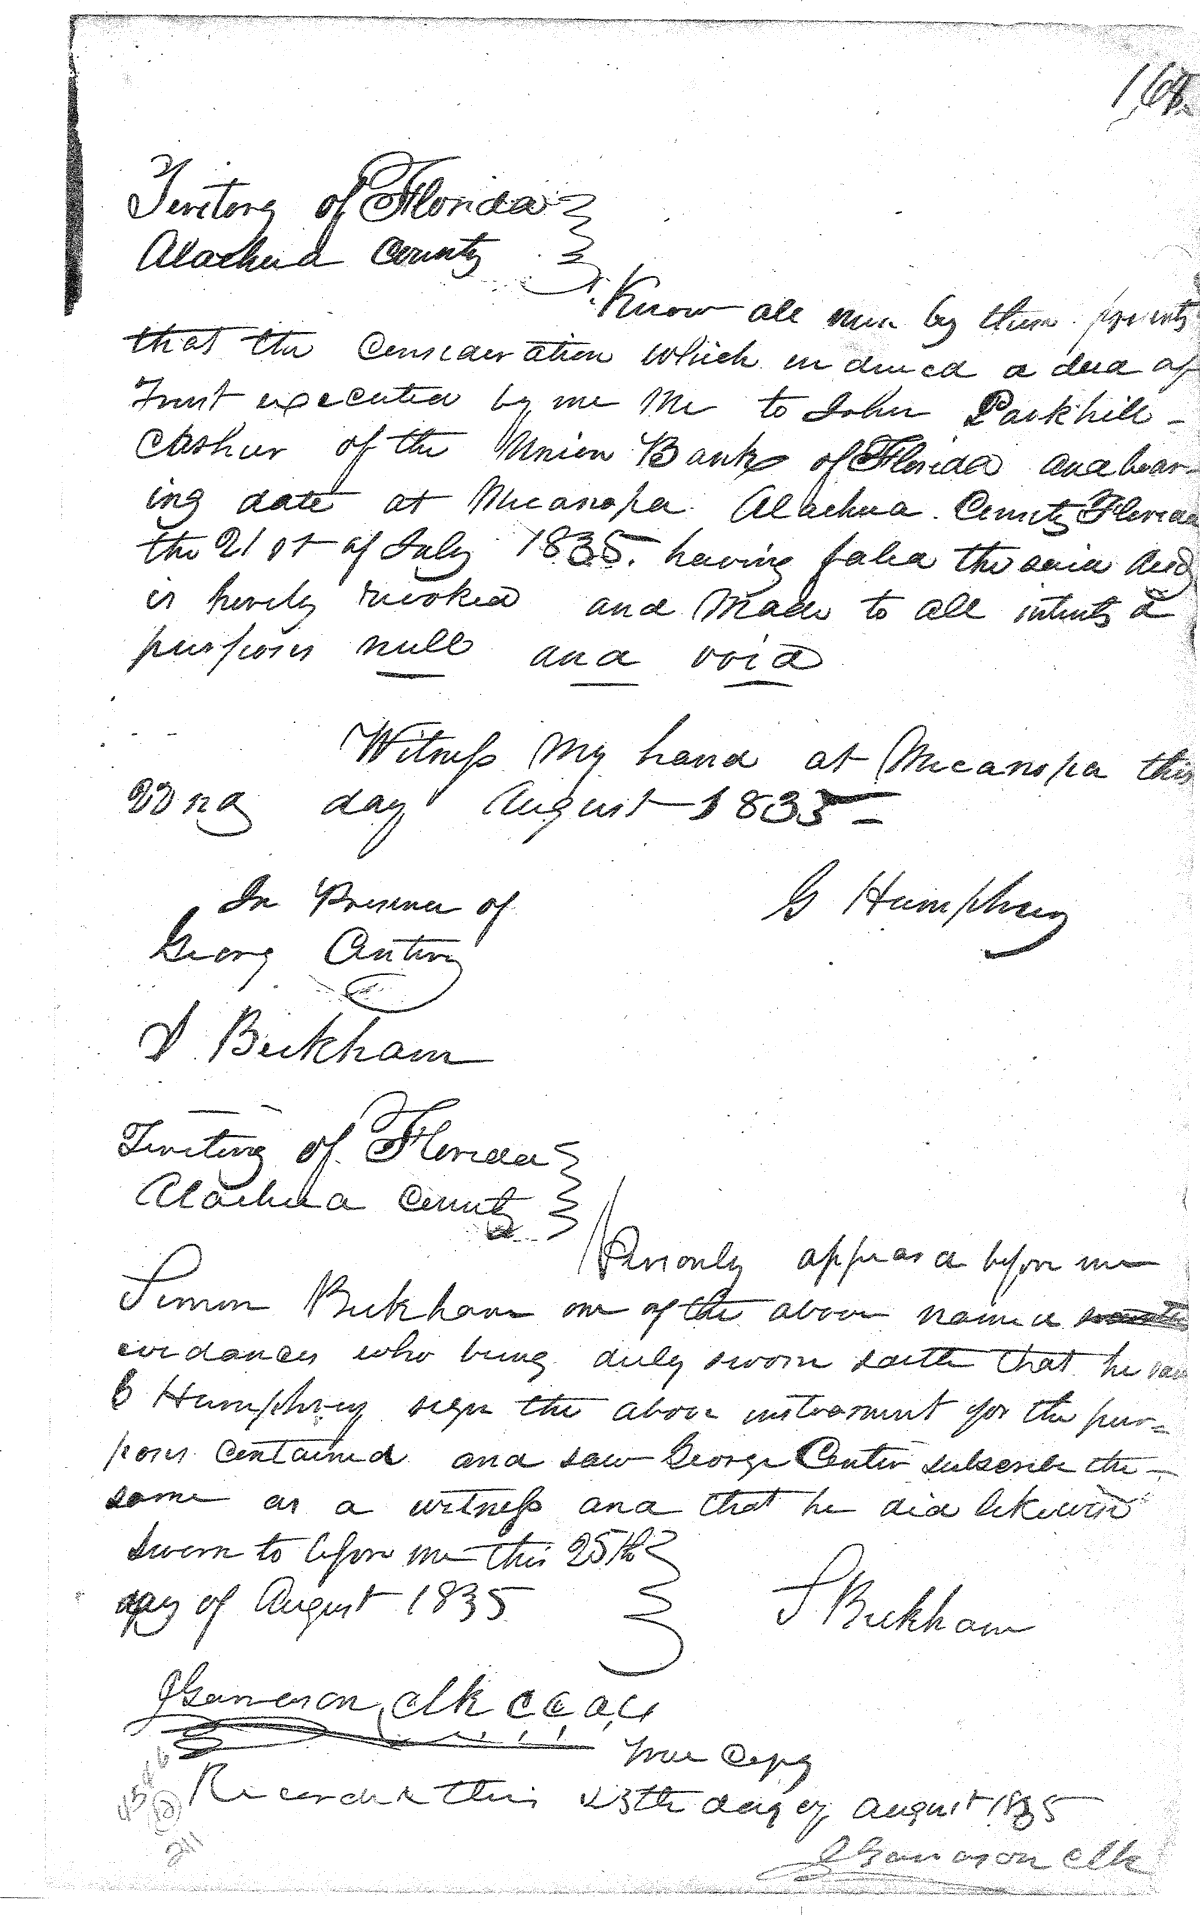 168
Teritory of Florida
Alachua County
Know all men by these presents
that the Consideration which induced a deed of
Trust executed by me Me to John Parkhill -
Cashier of the Union Bank of Florida and bear-
ing date at Micanopa Alachua County Florida
the 21st of July 1835. having faled the said deed
is herely revoked and Made to all intents &
purposes null and void
Witness My hand at Micanopa this
22nd day August 1835
In Presence of G Humphrey
Georg Center
S Beckham
Teritory of Florida
Alachua County
Personly appeard before me
Simon Beckham one of the above named
evidances who being duly sworn saith that he saw
G Humphrey sign the above instrament for the pur=
poses contained and saw George Center subscribe the -
same as a witness and that he did likewise
Sworn to before me this 25th
day of August 1835
S Beckham
J Gamason Clk C C A C
True Copy
Recorded this 25th day of August 1835
J Gamason Clk
211